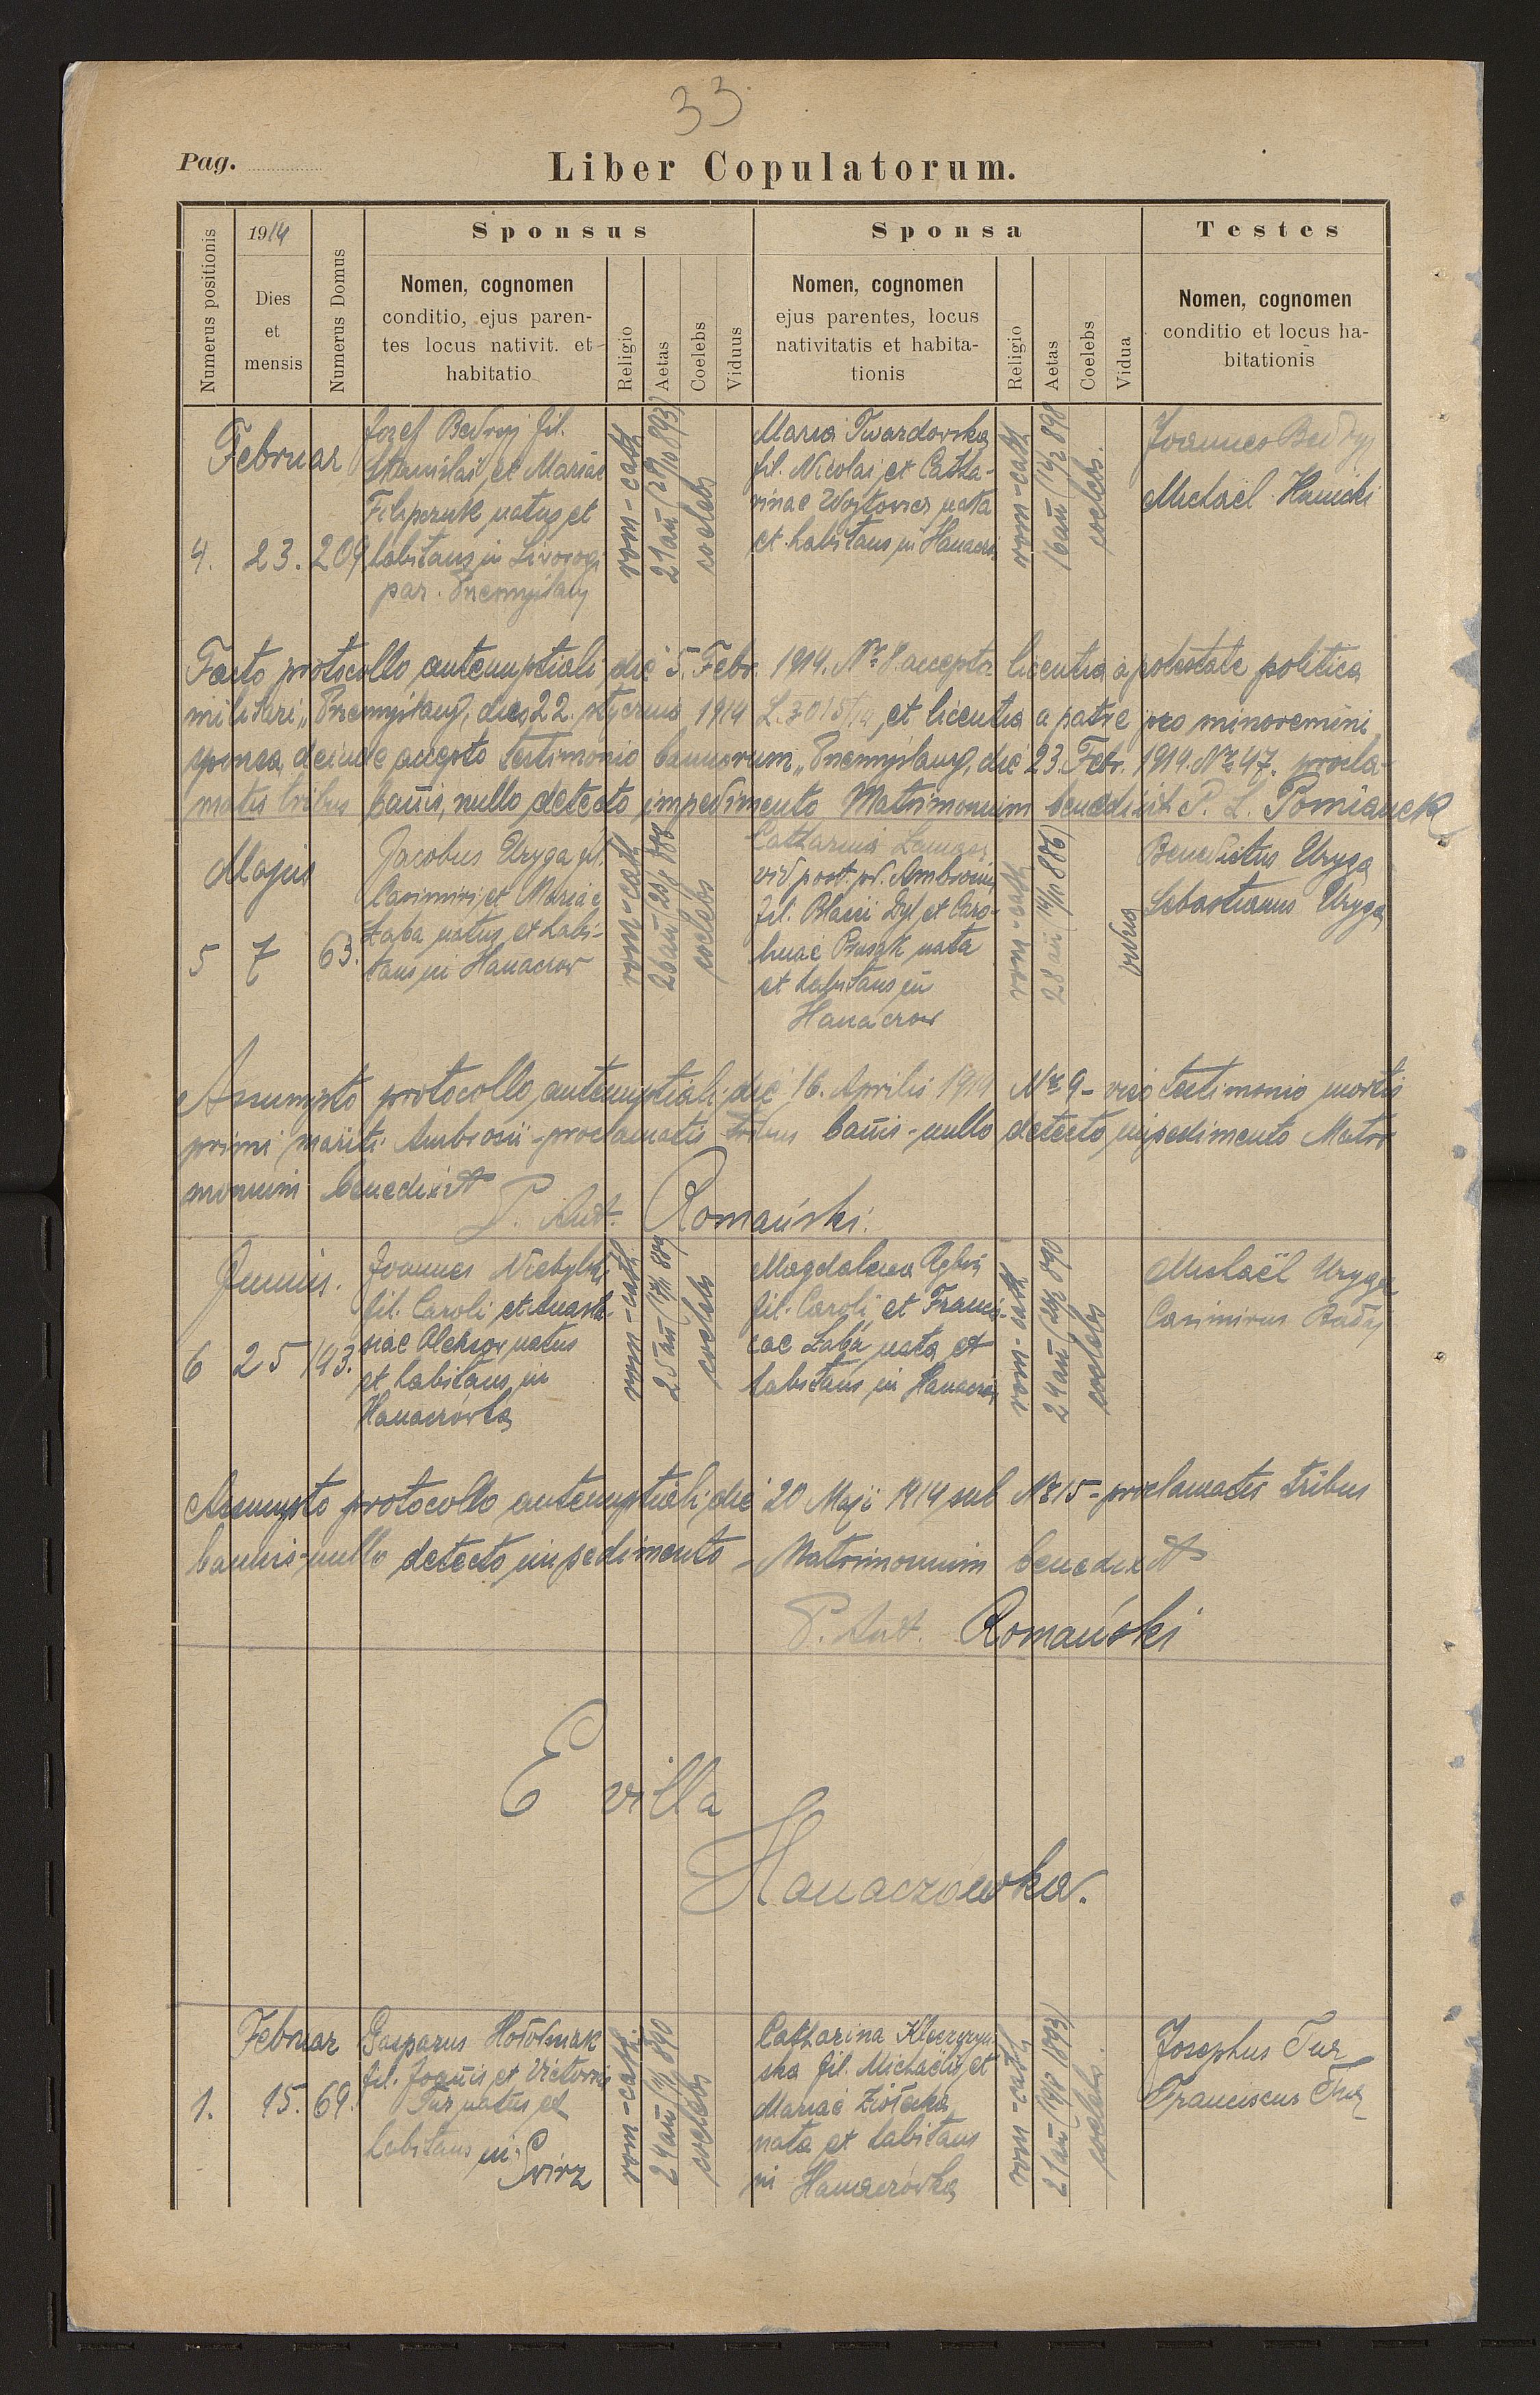 33
Pag.
Liber Copulatorum.
Numerus positionis
1914
Dies
et
mensis
Numerus Domus
Sponsus
Nomen, cognomen
conditio, ejus paren-
tes locus nativit. et
habitatio
Religio
Aetas
Coelebs
Viduus
Sponsa
Nomen, cognomen
ejus parentes, locus
nativitatis et habita-
tionis
Religio
Aetas
Coelebs
Vidua
Testes
Nomen, cognomen
conditio et locus ha-
bitationis
Februar
4. 23. 209
Jozef Bedryj fil.
Stanislai et Mariae
Filipczuk natus et
habitans in
par. Przemyślany
rom-cath
21 an (29/10 893)
coelebs
Maria Twardovska
fil. Nicolai et Catha-
rinae Wojtovicz nata
et habitans in
rom-cath
16 an (14/2 898
coelebs.
Joannes Bedryj
Michaël Hanicki
Facto protocollo antenuptiali die 5. Febr. 1914. Nr 8. accepta licentia a potestate politica
militari „Przemyślany, dies 22. stycznia 1914 L. 3015/14, et licentia a patre pro minorenni
sponsa, deinde accepto testimonio bannorum „Przemyślany, die 23. Febr. 1914. Nr 47. procla-
matis tribus bañis, nullo detecto impedimento Matrimonium benedixit P. L. Pomianek
Majus
5 7 63.
Jacobus Uryga fil.
Casimiri et Mariae
Żaba natus et habi-
tans in Hanaczow
rom-cath
26 an (25/7 888
coelebs
Catharina
vid post. pd. Ambrosium
fil. Blasii Dyl et Caro-
linae nata
et habitans in
Hanaczow
rom-cath
28 an (14/11 886)
vidua
Benedictus Uryga
Sebastianus Uryga
Assumpto protocollo antenuptiali die 16. Aprilis 1914 Nr 9 - viso testimonio mortis
primi mariti Ambrosii - proclamatis tribus bañis - nullo detecto impedimento Matri
monium benedixit
P. Ant. Romański.
Junius.
6 25 193.
Joannes Niebylski
fil. Caroli et Anasta
siae natus
et habitans in
Hanaczówka
rom-cath
25 an (17/1 889
coelebs
Magdalena
fil. Caroli et Francis-
cae Żaba nata et
habitans in
rom-cath
24 an (29/ 890
coelebs
Michaël Uryga
Casimirus
Assumpto protocollo antenuptiali die 20 Maji 1914 sub Nr 15 - proclamatis tribus
bannis - nullo detecto impedimento - Matrimonium benedixit
P. Ant. Romański
E villa
Hanaczówka.
Februar
1. 15. 69.
Gasparus Hołotniak
fil. Joañis et Victoriae
Tur natus et
habitans in
Svirz
rom-cath.
24 an (1/1 890
coelebs
Catharina Kleszczyń
ska fil. Michaëlis et
Mariae Ziółecka
nata et habitans
in Hanaczówka
rom-cath
21 an (19/2 1893)
coelebs.
Josephus Tur
Franciscus Tur